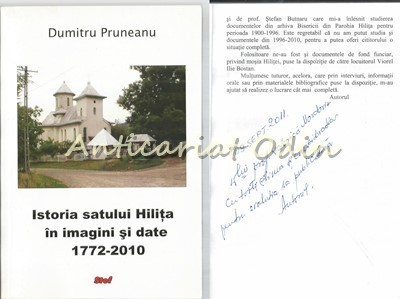 Dumitru Pruneanu
Istoria satului Hilița
în imagini și date
1772-2010
Stef
și de prof. Ștefan Butnaru care mi-a înlesnit studierea
documentelor din arhiva Bisericii din Parohia Hilița pentru
perioada 1900-1996. Este regretabil că nu am putut studia și
documentele din 1996-2010, pentru a putea oferi cititorului o
situație completă.
Folositoare ne-au fost și documentele de fond funciar,
privind moșia Hiliței, puse la dispoziție de către locuitorul Viorel
Ilie Bostan.
Mulțumesc tuturor, acelora, care prin interviuri, informații
orale sau prin materialele bibliografice puse la dispoziție, m-au
ajutat să realizez o lucrare cât mai completă.
Autorul
SEPT. 2011
pentru
Autorul.
Anticariat Odin